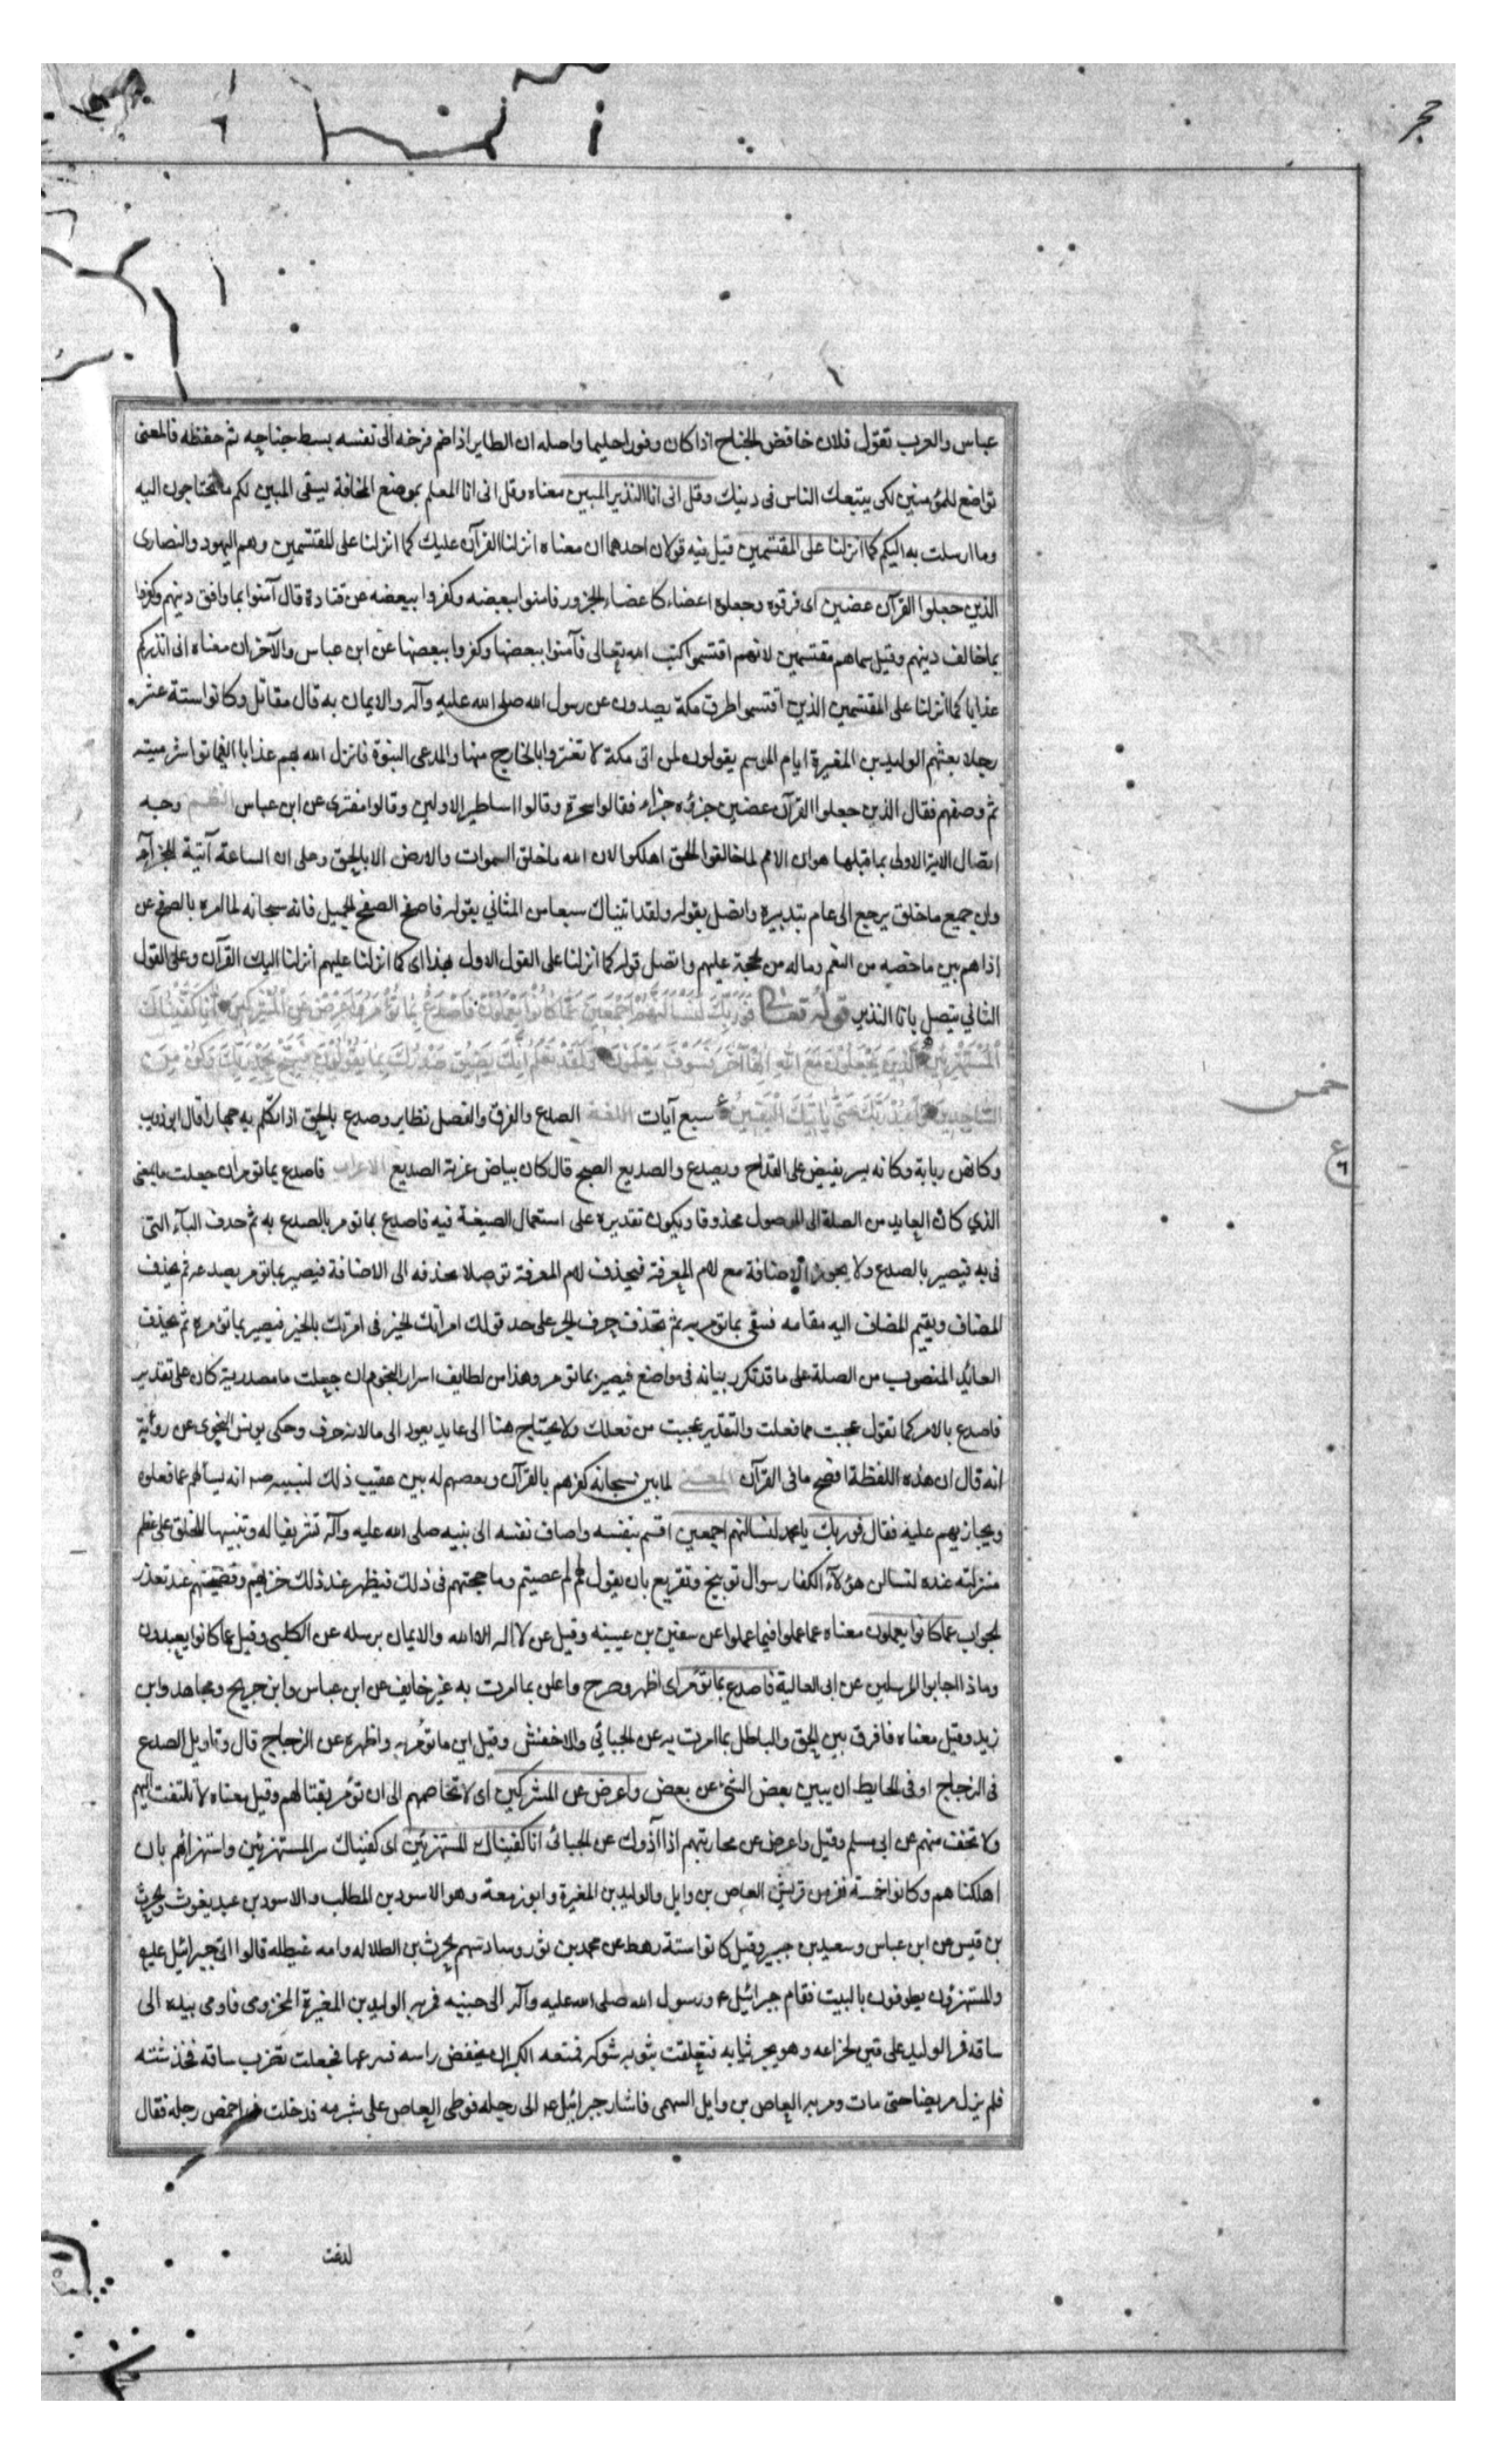 حجر
عباس والعرب تقول فلان خافض الجناح اذا كان وقورا حليما واصله ان الطاير اذا ضم فرخه الى نفسه بسط جناحه ثم خفظه فالمعنى
تواضع للمؤمنين لكى يتبعك الناس فى دينك وقل انى انا النذير المبين معناه وقل انى انا المعلم بموضع المخافة ليتقى المبين لكم ما تحتاجون اليه
وما ارسلت به اليكم كما انزلنا على المقتسمين قيل فيه قولان احدهما ان معناه انزلنا القرآن عليك كما انزلنا على المقتسمين وهم اليهود والنصارى
الذين جعلوا القرآن عضين اى فرقوه وجعلوه اعضاء كاعضاء الجزور فامنوا ببعضه وكفروا ببعضه عن قتادة قال آمنوا بما وافق دينهم وكفروا
بما خالف دينهم وقيل سماهم مقتسمين لانهم اقتسموا كتب الله تعالى فآمنوا ببعضها وكفروا ببعضها عن ابن عباس والآخر ان معناه انى انذركم
عذابا كما انزلنا على المقتسمين الذين اقتسموا طرق مكة يصدون عن رسول الله صلى الله عليه وآله والايمان به قال مقاتل وكانوا ستة عشر
رجلا بعثهم الوليد بن المغيرة ايام الموسم يقولون لمن اتى مكة لا تغتروا بالخارج منها والمدعى النبوة فانزل الله بهم عذابا فماتوا شر ميتة
ثم وصفهم فقال الذين جعلوا القرآن عضين جزؤه جزاء فقالوا سحرة وقالوا اساطير الاولين وقالوا مفترى عن ابن عباس النظم وجه
اتصال الاية الاولى بما قبلها هو ان الامم لما خالفوا الحق اهلكوا لان الله ما خلق السموات والارض الا بالحق وعلى ان الساعة آتية للجزآء
وان جميع ما خلق يرجع الى عام بتدبيره واتصل بقوله ولقد اتيناك سبعا من المثاني بقوله فاصفح الصفح الجميل فانه سبحانه لما امره بالصفح عن
اذاهم بين ما خصه من النعم وماله من محجة عليهم واتصل قوله كما انزلنا على القول الاول بهذا اى كما انزلنا عليهم انزلنا اليك القرآن وعلى القول
الثاني يتصل بانا النذير قوله تعالى فَوَرَبِّكَ لَنَسْأَلَنَّهُمْ أَجْمَعِينَ عَمَّا كَانُوا يَعْمَلُونَ فَاصْدَعْ بِمَا تُؤْمَرُ وَأَعْرِضْ عَنِ الْمُشْرِكِينَ إِنَّا كَفَيْنَاكَ
الْمُسْتَهْزِئِينَ الَّذِينَ يَجْعَلُونَ مَعَ اللهِ إِلٰهًا آخَرَ فَسَوْفَ يَعْلَمُونَ وَلَقَدْ نَعْلَمُ أَنَّكَ يَضِيقُ صَدْرُكَ بِمَا يَقُولُونَ فَسَبِّحْ بِحَمْدِ رَبِّكَ وَكُنْ مِنَ
السَّاجِدِينَ وَاعْبُدْ رَبَّكَ حَتَّى يَأْتِيَكَ الْيَقِينُ سبع آيات اللغة الصدع والفرق والفصل نظاير وصدع بالحق اذا تكلم به جهارا قال ابو ذويب
خمس
وكانهن ربابة وكانه يسر يفيض على القداح ويصدع والصديع الصبح قال كان بياض غرته الصديع الاعراب فاصدع بما تؤمر ان جعلت ما بمعنى
ع
٦
الذي كان العايد من الصلة الى الموصول محذوفا ويكون تقديره على استعمال الصيغة فيه فاصدع بما تؤمر بالصدع به ثم حذف البآء التى
فى به فيصير بالصدع ولا يجوز الاضافة مع لام المعرفة فيحذف لام المعرفة توصلا بحذفه الى الاضافة فيصير بما تؤمر بصدعه ثم يحذف
المضاف ويقيم المضاف اليه مقامه فبقى بما تؤمر به ثم تحذف حرف الجر على حد قولك امرتك الخير فى امرتك بالخير فيصير بما تؤمره ثم يحذف
العايد المنصوب من الصلة على ما قد تكرر بيانه فى مواضع فيصير بما تؤمر وهذا من لطايف اسرار النحو وان جعلت ما مصدرية كان على تقدير
فاصدع بالامر كما تقول عجبت مما فعلت والتقدير عجبت من فعلك ولا يحتاج هنا الى عايد يعود الى ما لانه حرف وحكى يونس النحوى عن روبة
انه قال ان هذه اللفظة افصح ما فى القرآن المعنى لما بين سبحانه كفرهم بالقرآن وبعصهم له بين عقيب ذلك لنبيه صه انه يسألهم عما فعلوه
ويجازيهم عليه فقال فوربك يا محمد لنسألنهم اجمعين اقسم بنفسه واضاف نفسه الى نبيه صلى الله عليه وآله تشريفا له وتنبيها للخلق على عظم
منزلته عنده لنسالن هؤلآء الكفار سوال توبيخ وتقريع بان يقول لهم لم عصيتم وما حجتهم فى ذلك فيظهر عند ذلك خزيهم وفضيحتهم عند تعذر
الجواب عما كانوا يعملون معناه عما عملوا فيما عملوا عن سفين بن عيينه وقيل عن لا اله الا الله والايمان برسله عن الكلبى وقيل عما كانوا يعبدون
وماذا اجابوا المرسلين عن ابى العالية فاصدع بما تؤمر اى اظهر وصرح واعلن بما امرت به غير خايف عن ابن عباس وابن جريح ومجاهد وابن
زيد وقيل معناه فافرق بين الحق والباطل بما امرت به عن الجبائي والاخفش وقيل ابن ما تؤمر به واظهره عن الزجاج قال وتاويل الصدع
فى الزجاج او فى الحايط ان يبين بعض الشئ عن بعض واعرض عن المشركين اى لا تخاصمهم الى ان تؤمر بقتالهم وقيل معناه لا تلتفت اليهم
ولا تخف منهم عن ابى مسلم وقيل واعرض عن محاربتهم اذا آذوك عن الجبائى انا كفيناك المستهزئين اى كفيناك شر المستهزئين واستهزائهم بان
اهلكناهم وكانوا خمسة نفر من قريش العاص بن وايل والوليد بن المغيرة وابو زمعة وهو الاسود بن المطلب والاسود بن عبد يغوث والحرث
بن قيس عن ابن عباس وسعيد بن جبير وقيل كانوا ستة رهط عن محمد بن ثور وسادسهم الحرث بن الطلاله وامه غيطله قالوا اتى جبرائيل عليه
والمستهزؤن يطوفون بالبيت فقام جبرائيل ع ورسول الله صلى الله عليه وآله الى جنبه فمر به الوليد بن المغيرة المخزومى فاومى بيده الى
ساقه فمر الوليد على قين لخزاعه وهو يجر ثيابه فتعلقت بثوبه شوكة فمنعه الكبر ان يخفض راسه فينزعها فجعلت تضرب ساقه فخدشته
فلم يزل مريضا حتى مات ومر به العاص بن وايل السهمى فاشار جبرائيل ع الى رجله فوطى العاص على شبرمه فدخلت فى اخمص رجله فقال
لدغت